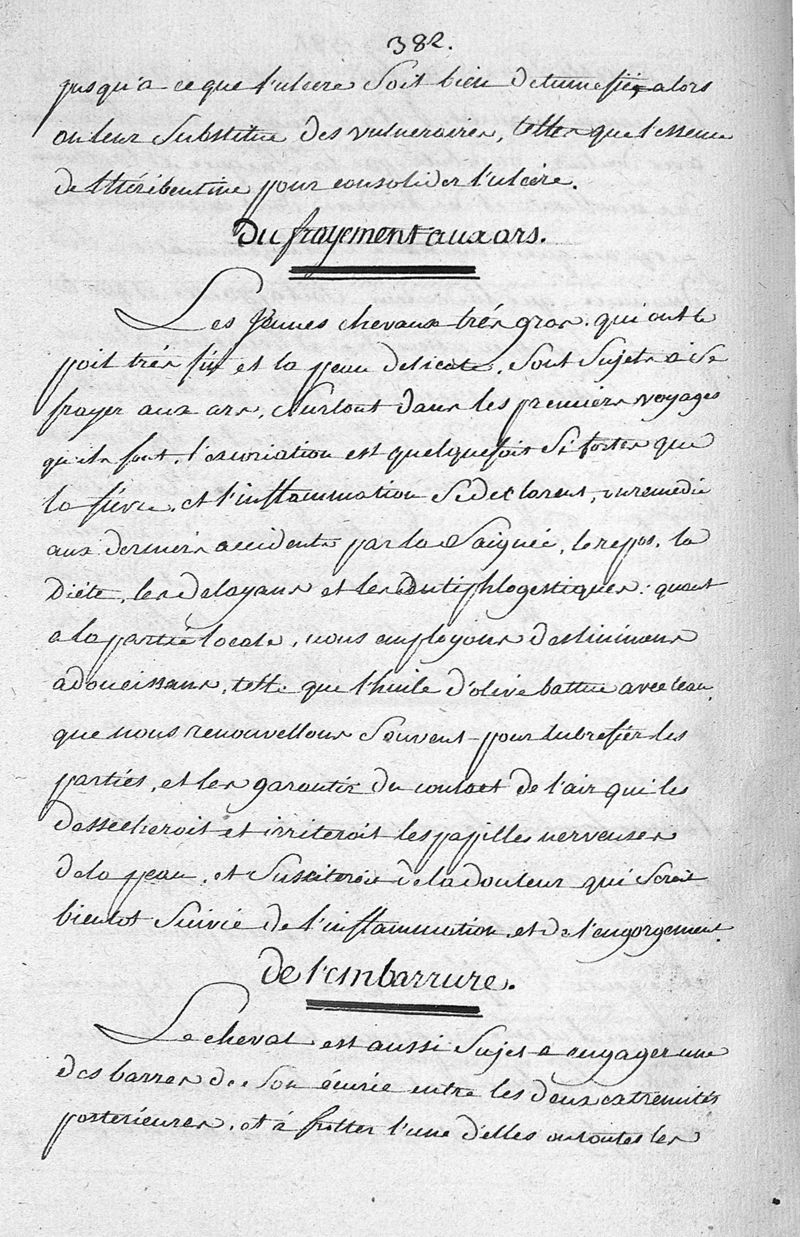 382.
jusqu'a ce que l'ulcere soit bien detumefié, alors
on leur substitue des vulneraires, telles que l'essence
de tterébentine pour consolider l'ulcére.
Du frayement aux ars.
Les jeunes chevaux trés gros, qui ont le
poil trés fin et la peau delicate, sont sujets a se
frayer aux ars, surtout dans les premiers voyages
qu'ils font, l'excoriation est quelquefois si fortes que
la fiévre, et l'inflammation se declarent, on remedie
aux derniers accidents par la saignée, le repos, la
Diéte, les delayans et les antiphlogestiques: quant
a la partie locale, nous employons des linimens
adoucissans, telle que l'huile d'olive battue avec l'eau,
que nous renouvellons souvent pour lubrefier les
parties, et les garantir du contact de l'air qui les
dessecheroit et irriteroit les papilles nerveuses
de la peau, et susciteroit de la douleur qui seroit
bientot suivie de l'inflammation et de l'engorgement.
de l'embarrure.
Le cheval est aussi sujet a engager une
des barres de son écurie entre les deux extremités
posterieures, et à frotter l'une d'elles ou toutes les